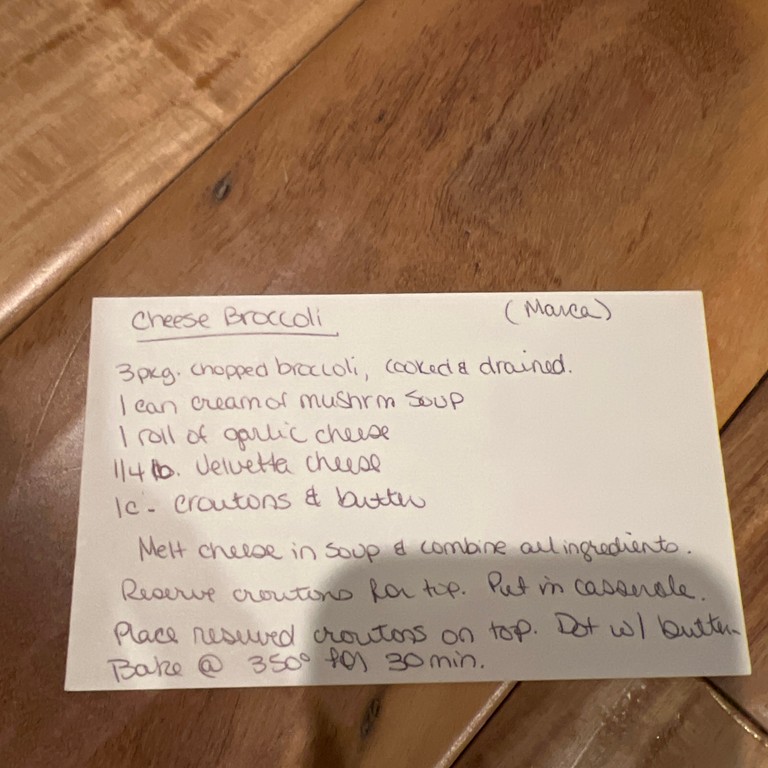 Cheese Broccoli (Marca)
3 pkg. chopped broccoli, cooked & drained.
1 can cream of mushrm soup
1 roll of garlic cheese
1/4 lb. Velvetta cheese
1c - croutons & butter
Melt cheese in soup & combine all ingredients.
Reserve croutons for top. Put in casserole.
Place reserved croutons on top. Dot w/ butter
Bake @ 350° for 30 min.